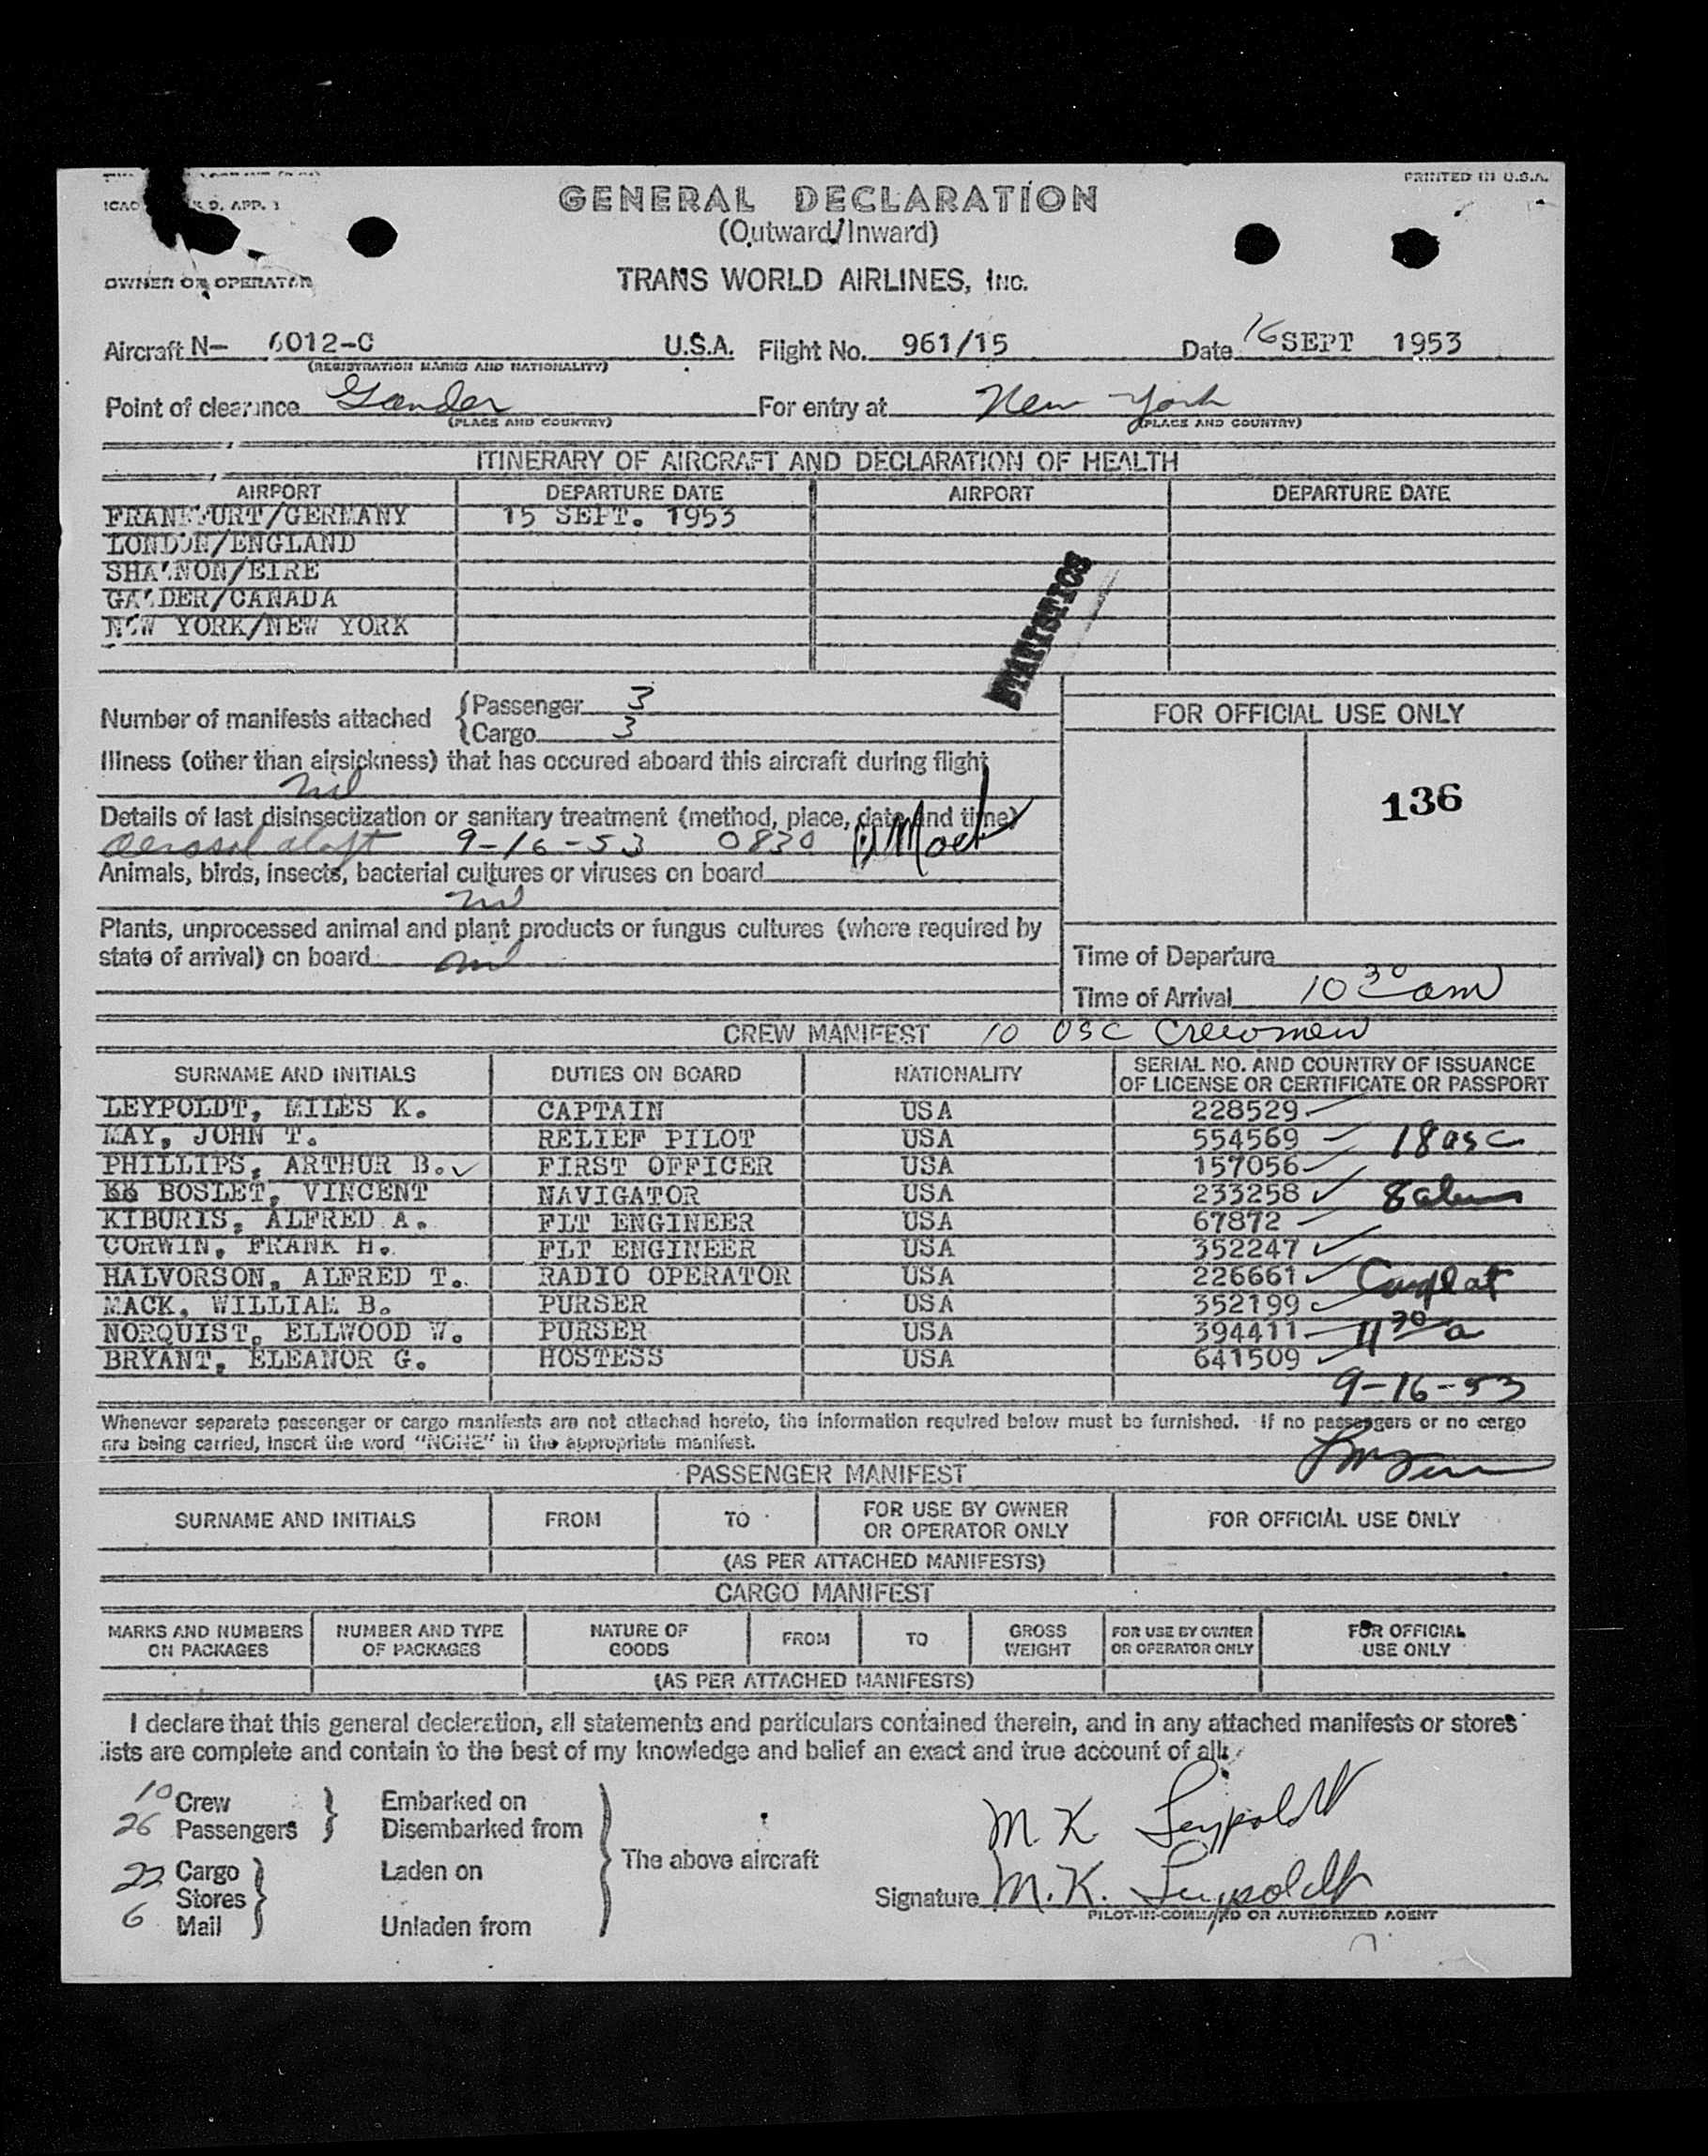 PRINTED IN U.S.A.
ICAO 9, APP. 1
GENERAL DECLARATION
(Outward/Inward)
OWNER OR OPERATOR TRANS WORLD AIRLINES, INC.
Aircraft N- 6012-C U.S.A. Flight No. 961/15 Date 16 SEPT 1953
(REGISTRATION MARKS AND NATIONALITY)
Point of clearance Gander For entry at New York
(PLACE AND COUNTRY) (PLACE AND COUNTRY)
ITINERARY OF AIRCRAFT AND DECLARATION OF HEALTH
AIRPORT DEPARTURE DATE AIRPORT DEPARTURE DATE
FRANKFURT/GERMANY 15 SEPT. 1953
LONDON/ENGLAND
SHANNON/EIRE
GANDER/CANADA
NEW YORK/NEW YORK
STATISTICS
Number of manifests attached {Passenger 3
{Cargo 3
FOR OFFICIAL USE ONLY
136
Illness (other than airsickness) that has occured aboard this aircraft during flight
nil
Details of last disinsectization or sanitary treatment (method, place, date and time)
aerosol aloft 9-16-53 0830
Animals, birds, insects, bacterial cultures or viruses on board
nil
Plants, unprocessed animal and plant products or fungus cultures (where required by
state of arrival) on board nil
Time of Departure
Time of Arrival 10 30 am
CREW MANIFEST 10 USC Crewmen
SURNAME AND INITIALS DUTIES ON BOARD NATIONALITY SERIAL NO. AND COUNTRY OF ISSUANCE
OF LICENSE OR CERTIFICATE OR PASSPORT
LEYPOLDT, MILES K. CAPTAIN USA 228529
MAY, JOHN T. RELIEF PILOT USA 554569 18 usc
PHILLIPS, ARTHUR B. FIRST OFFICER USA 157056
BOSLET, VINCENT NAVIGATOR USA 233258 8 aliens
KIBURIS, ALFRED A. FLT ENGINEER USA 67872
CORWIN, FRANK H. FLT ENGINEER USA 352247
HALVORSON, ALFRED T. RADIO OPERATOR USA 226661
MACK, WILLIAM B. PURSER USA 352199
NORQUIST, ELLWOOD W. PURSER USA 394411 11 30 a
BRYANT, ELEANOR G. HOSTESS USA 641509
9-16-53
Whenever separate passenger or cargo manifests are not attached hereto, the information required below must be furnished. If no passengers or no cargo
are being carried, insert the word "NONE" in the appropriate manifest.
PASSENGER MANIFEST
SURNAME AND INITIALS FROM TO FOR USE BY OWNER
OR OPERATOR ONLY FOR OFFICIAL USE ONLY
(AS PER ATTACHED MANIFESTS)
CARGO MANIFEST
MARKS AND NUMBERS
ON PACKAGES NUMBER AND TYPE
OF PACKAGES NATURE OF
GOODS FROM TO GROSS
WEIGHT FOR USE BY OWNER
OR OPERATOR ONLY FOR OFFICIAL
USE ONLY
(AS PER ATTACHED MANIFESTS)
I declare that this general declaration, all statements and particulars contained therein, and in any attached manifests or stores
lists are complete and contain to the best of my knowledge and belief an exact and true account of all:
10 Crew } Embarked on
26 Passengers } Disembarked from
M. K. Leypoldt
22 Cargo } Laden on
The above aircraft
Stores
6 Mail } Unladen from
Signature M. K. Leypoldt
PILOT-IN-COMMAND OR AUTHORIZED AGENT